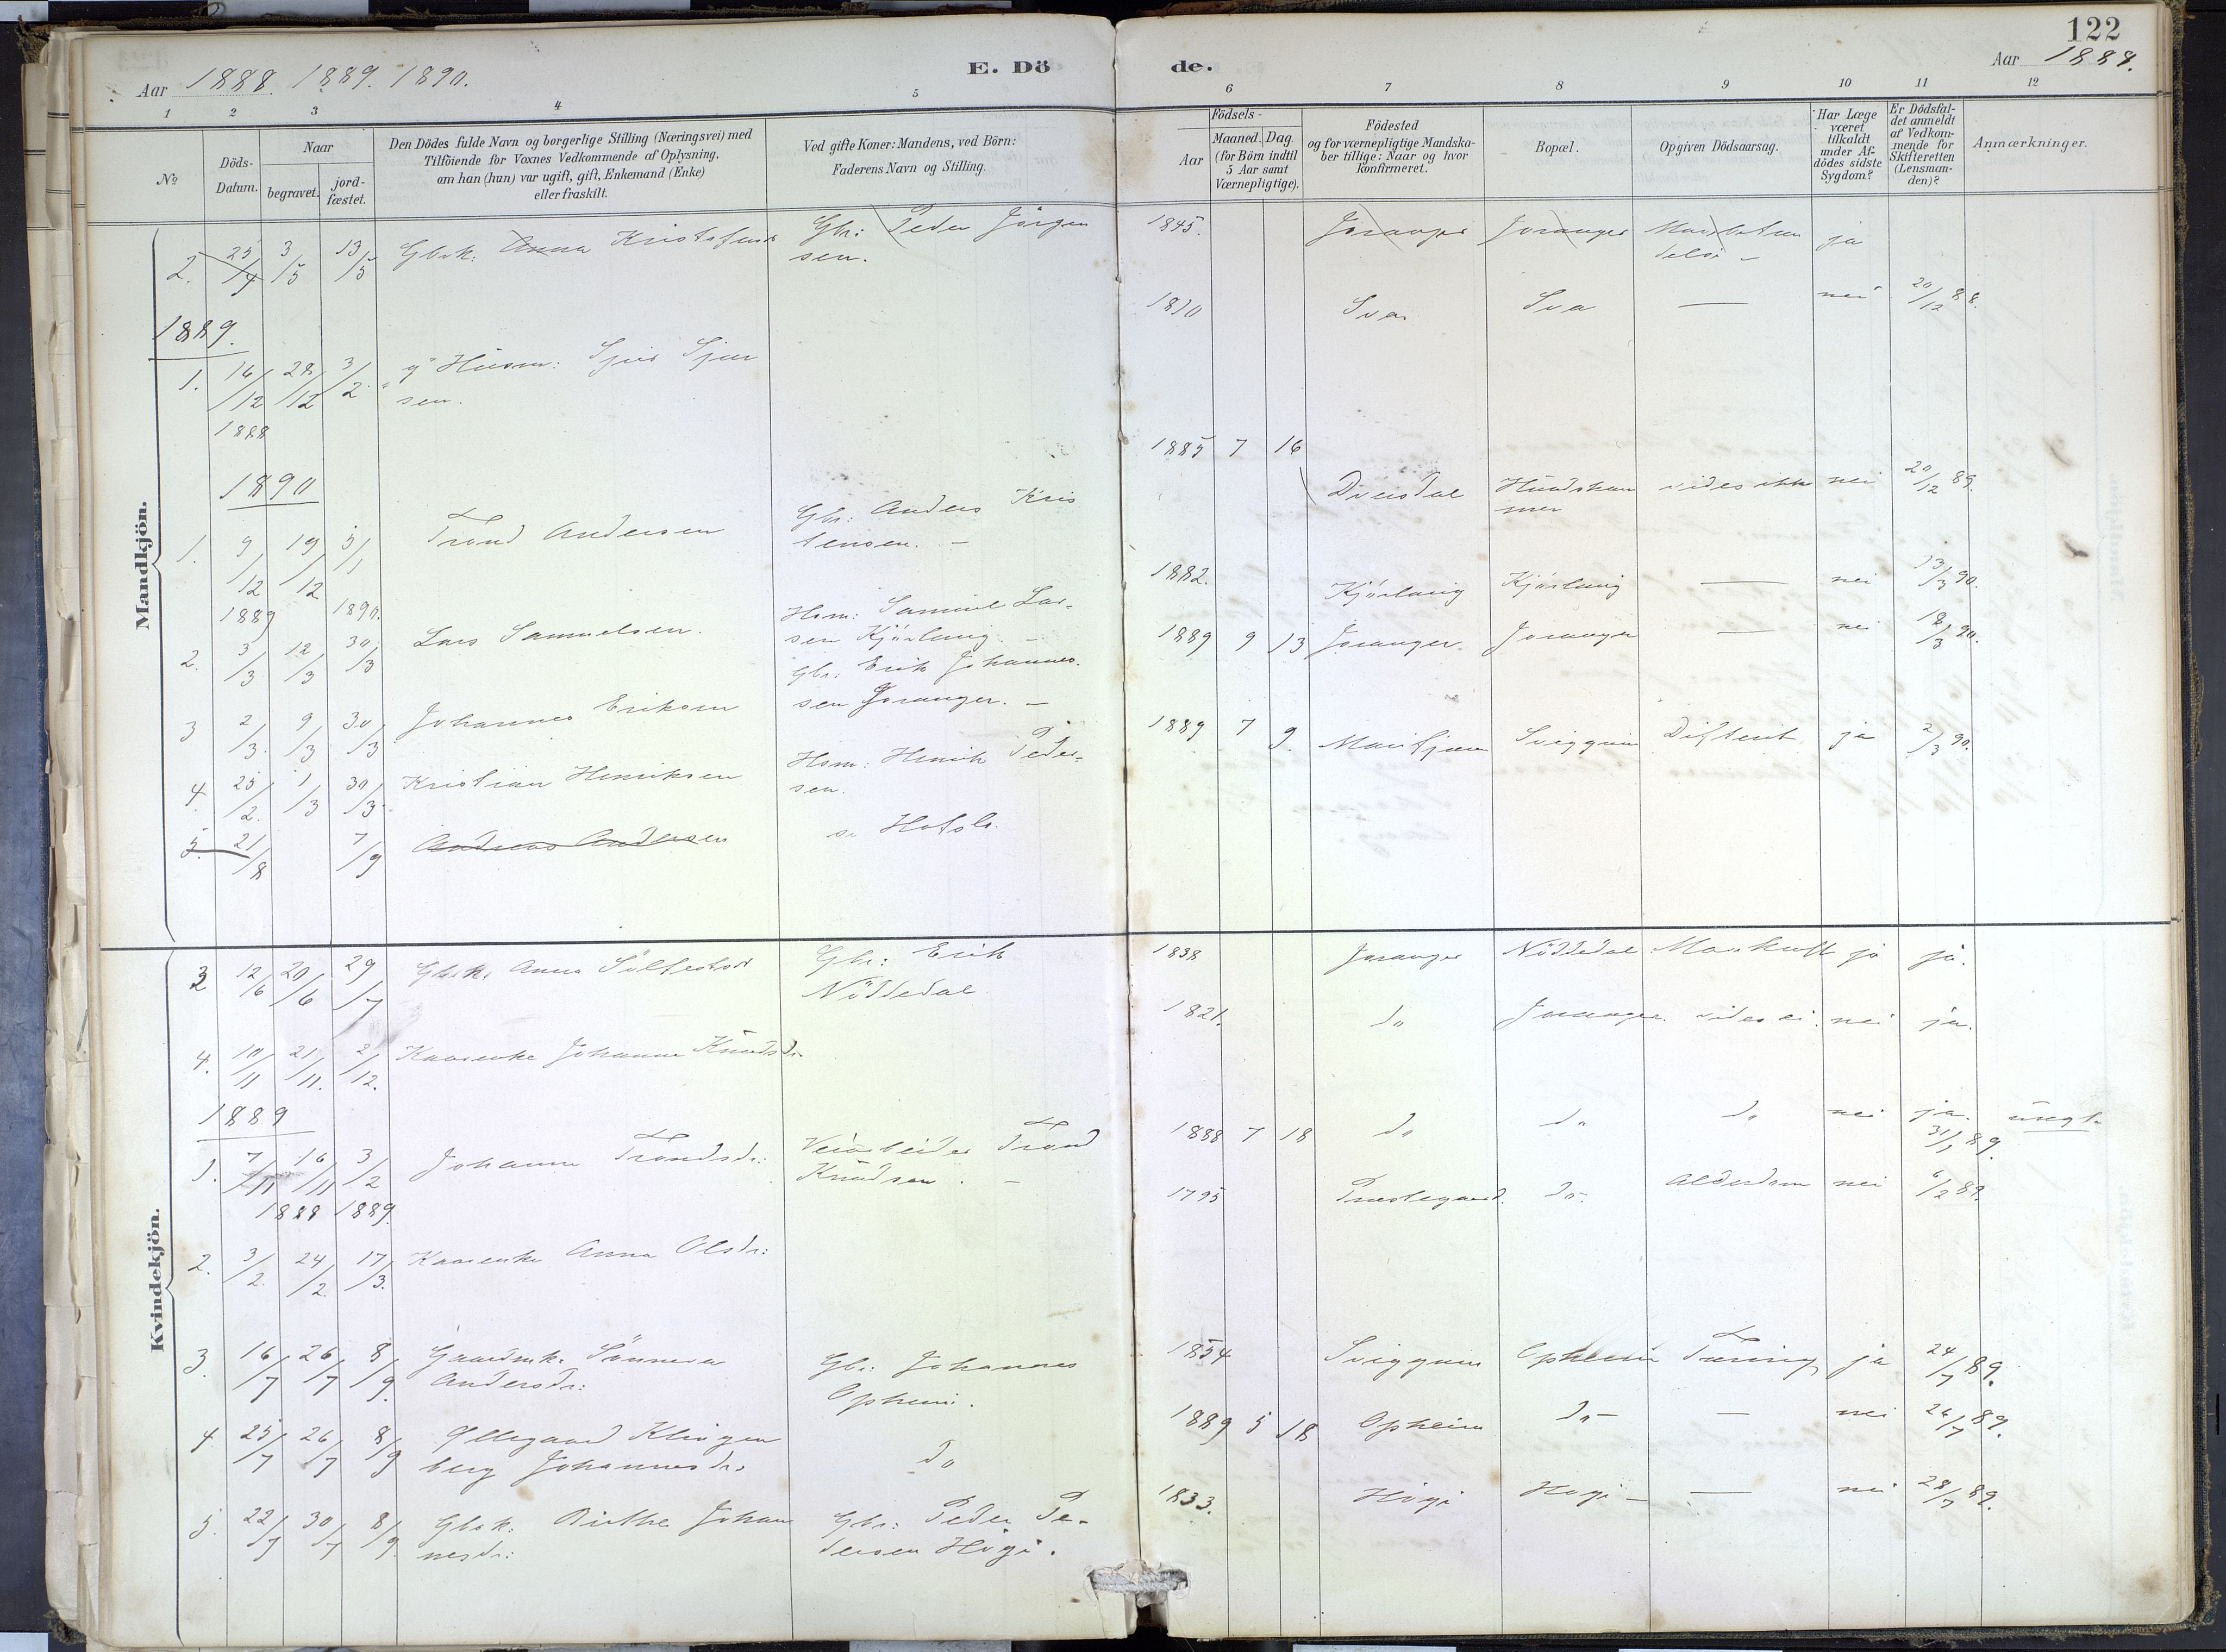 122
Aar 1888. 1889. 1890.
E. Döde.
Aar 1888.
1 2 3 4 5 6 7 8 9 10 11 12
No
Döds-Datum.
Naar
begravet.
jord-fæstet.
Den Dödes fulde Navn og borgerlige Stilling (Næringsvei) med
Tilföiende for Voxnes Vedkommende af Oplysning,
om han (hun) var ugift, gift, Enkemand (Enke)
eller fraskilt.
Ved gifte Koner: Mandens, ved Börn:
Faderens Navn og Stilling.
Födsels-
Aar
Maaned. Dag.
(for Börn indtil
5 Aar samt
Værnepligtige).
Födested
og for værnepligtige Mandska-
ber tillige: Naar og hvor
konfirmeret.
Bopæl.
Opgiven Dödsaarsag.
Har Læge
været
tilkaldt
under Af-
dödes sidste
Sygdom?
Er Dödsfal-
det anmeldt
af Vedkom-
mende for
Skifteretten
(Lensman-
den)?
Anmærkninger.
Mandkjön.
2. 25/4 3/5 13/5 Gbrk: Anna Kristofersd Gbr: Peder Jörgen
sen. 1845. Joranger Joranger ja
1889.
1. 16/12 28/12 3/2 g Husm: Sjur Sjur
sen. 1810 Sva Sva — nei 20/12 88.
1888
1890
1. 9/12 19/12 5/1 Trond Andersen Gbr: Anders Kris
tensen. — 1885 7 16 Dveisdal Hundskam
mer vides ikke nei 20/12 89.
1889 1890.
2. 3/3 12/3 30/3 Lars Samuelsen. Hsm: Samuel Lar-
sen Kjörlaug — 1882. Kjörlaug Kjörlaug — nei 13/3 90.
3 2/3. 9/3 30/3 Johannes Eriksen Gbr: Erik Johannes-
sen Joranger. — 1889 9 13 Joranger. Joranger — nei 18/3 90.
4 25/2. 1/3 30/3 Kristian Henriksen Hsm: Henrik Peder-
sen. 1889 7 9. Marifjæren Sviggum Difterit ja 2/3 90.
5. 21/8 7/9 Andreas Andersen se Hafslo.
Kvindekjön.
3 12/6 20/6 29/7 Gbrk. Anna Sölfestsd Gbr: Erik
Nöttedal 1838 Joranger Nöttedal ja ja.
4. 10/11 21/11. 2/12. Kaarenke Johanne Knudsd. 1821. do Joranger. vides ei. nei ja.
1889
1. 7/11 16/11 3/2 Johanne Trondsdr: Veiarbeider Trond
Knudsen. — 1888 7 18 do do do nei ja.
31/1 89. ungt.
1888 1889.
2. 3/2. 24/2. 17/3. Kaarenke Anna Olsdr: 1795 Præstegaard. do. Alderdom nei 6/2 89.
3. 16/7 26/7 8/9. Gaardmk. Sönneva
Andersdr: Gbr: Johannes
Opheim. 1854 Sviggum Opheim Tæring ja 24/7 89.
4 25/7 26/7 8/9 Ollegaard Klingen
berg Johannesdr. do 1889 5 18 Opheim do — — nei 26/7 89.
5. 22/7 30/7 8/9. Gbrk: Birthe Johan
nesdr: Gbr: Peder Pe-
dersen Högi. 1833. Högi Högi — — nei 28/7 89.